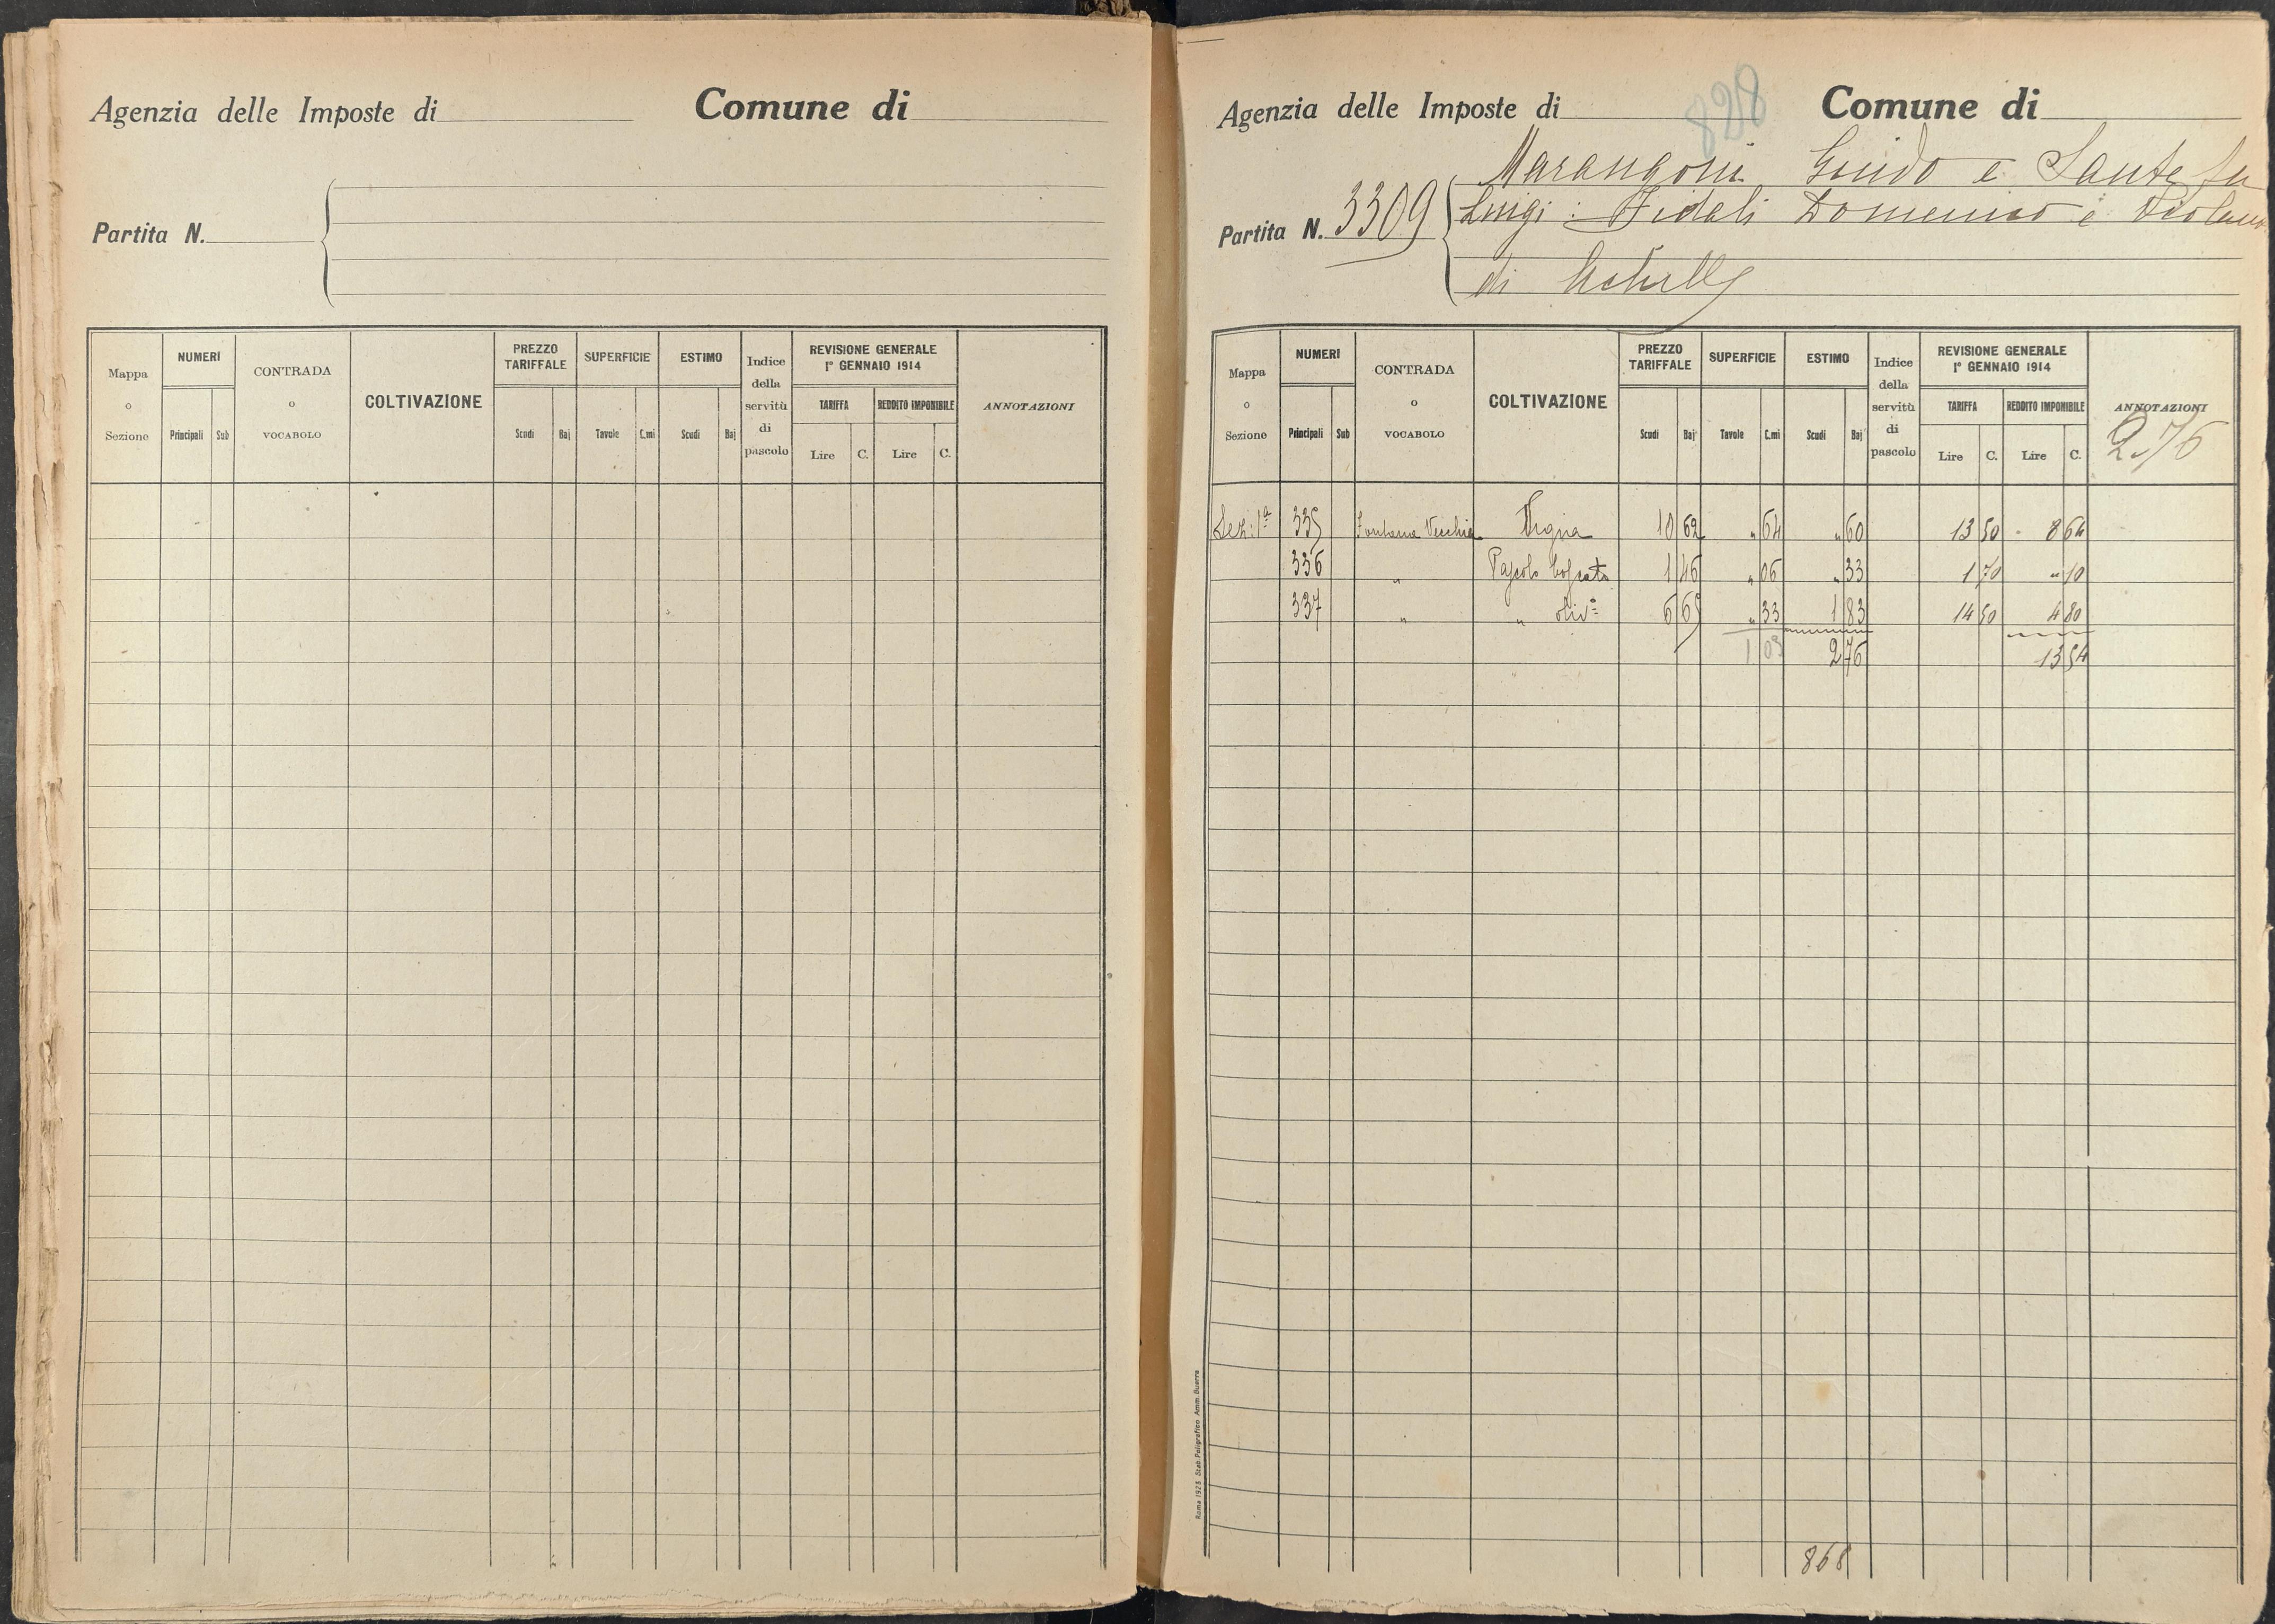 Agenzia delle Imposte di Comune di
Partita N.
Mappa o Sezione NUMERI Principali Sub CONTRADA o VOCABOLO COLTIVAZIONE PREZZO TARIFFALE Scudi Baj SUPERFICIE Tavole C.mi ESTIMO Scudi Baj Indice della servitù di pascolo REVISIONE GENERALE 1° GENNAIO 1914 TARIFFA Lire C. REDDITO IMPONIBILE Lire C. ANNOTAZIONI
828
Agenzia delle Imposte di Comune di
Marangoni Guido e Sante fu
Partita N. 3309 Luigi : Fidali Domenico e
di Achille
Mappa o Sezione NUMERI Principali Sub CONTRADA o VOCABOLO COLTIVAZIONE PREZZO TARIFFALE Scudi Baj SUPERFICIE Tavole C.mi ESTIMO Scudi Baj Indice della servitù di pascolo REVISIONE GENERALE 1° GENNAIO 1914 TARIFFA Lire C. REDDITO IMPONIBILE Lire C. ANNOTAZIONI
2.76
Sez: 1ª 335 Fontana Vecchia Vigna 10 62 " 64 " 60 13 50 8 64
336 " Pascolo boscato 1 46 " 06 " 33 1 70 " 10
337 " " oliv° 6 65 " 33 1 83 14 50 4 80
1 03 2 76 13 54
868
Roma 1925 Stab. Poligrafico Amm. Guerra